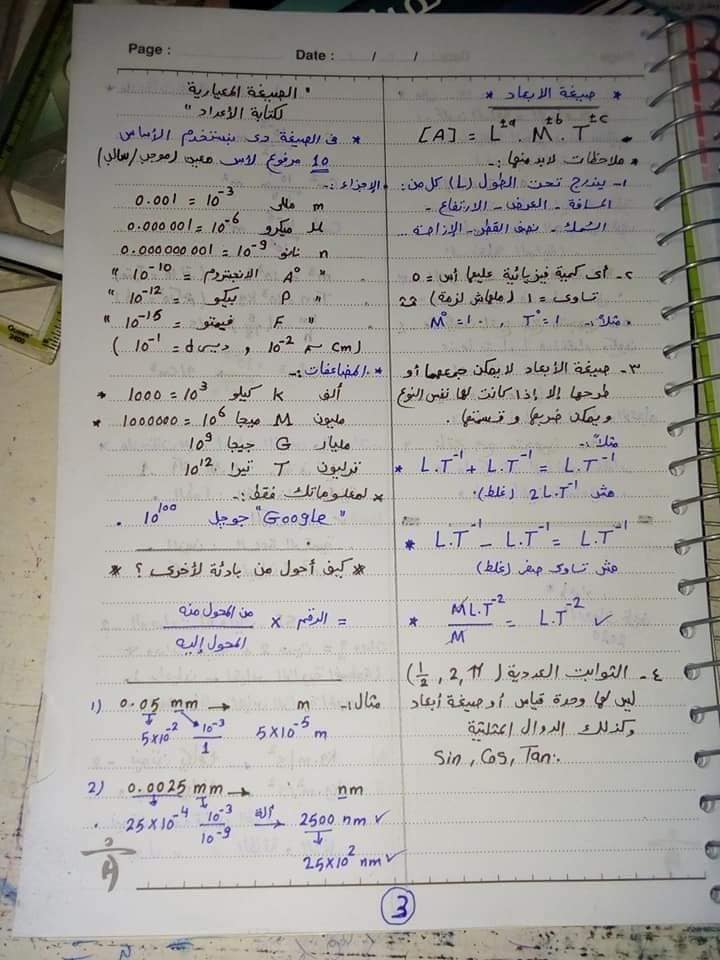 Page :
Date : / /
* صيغة الابعاد *
[A] = L^±a . M^±b . T^±c
* ملاحظات لابد منها :-
١- يندرج تحت الطول (L) كل من :
المسافة - العرض - الارتفاع -
السُمك - نصف القطر - الإزاحة
٢- أى كمية فيزيائية عليها أس = 0
تساوى = 1 (ملهاش لزمة)
مثلاً :- T° = 1 , M° = 1
٣- صيغة الأبعاد لا يمكن جمعها أو
طرحها إلا إذا كانت لها نفس النوع
ويمكن ضربها وقسمتها .
مثلاً :-
* L.T⁻¹ + L.T⁻¹ = L.T⁻¹
مش 2L.T⁻¹ (غلط)
* L.T⁻¹ - L.T⁻¹ = L.T⁻¹
مش تساوى صفر (غلط)
* ML.T⁻² / M = L.T⁻² ✓
٤- الثوابت العددية (½ , 2 , π)
ليس لها وحدة قياس أو صيغة أبعاد
وكذلك الدوال المثلثية
Sin , Cos , Tan .
" الصيغة المعيارية
لكتابة الأعداد "
* فى الصيغة دى بنستخدم الأساس
10 مرفوع لأس معين (موجب/سالب)
* الاجزاء :-
m مللى 10⁻³ = 0.001
µ ميكرو 10⁻⁶ = 0.000 001
n نانو 10⁻⁹ = 0.000 000 001
" A° الانجستروم = 10⁻¹⁰ "
" P بيكو = 10⁻¹² "
" F فيمتو = 10⁻¹⁵ "
(cm سم 10⁻² , ديسى d = 10⁻¹)
* المضاعفات :-
ألف k كيلو 10³ = 1000 *
مليون M ميجا 10⁶ = 1000000 *
مليار G جيجا 10⁹
تريليون T تيرا 10¹²
* لمعلوماتك فقط :-
"Google" جوجل 10¹⁰⁰ .
* كيف أحول من بادئة لأخرى ؟ *
= الرقم × من المحول منه / المحول إليه
مثال :-
1) 0.05 mm → m
5×10⁻² 10⁻³/1 5×10⁻⁵ m
2) 0.0025 mm → nm
25×10⁻⁴ 10⁻³/10⁻⁹ ألة → 2500 nm ✓
25×10² nm ✓
3